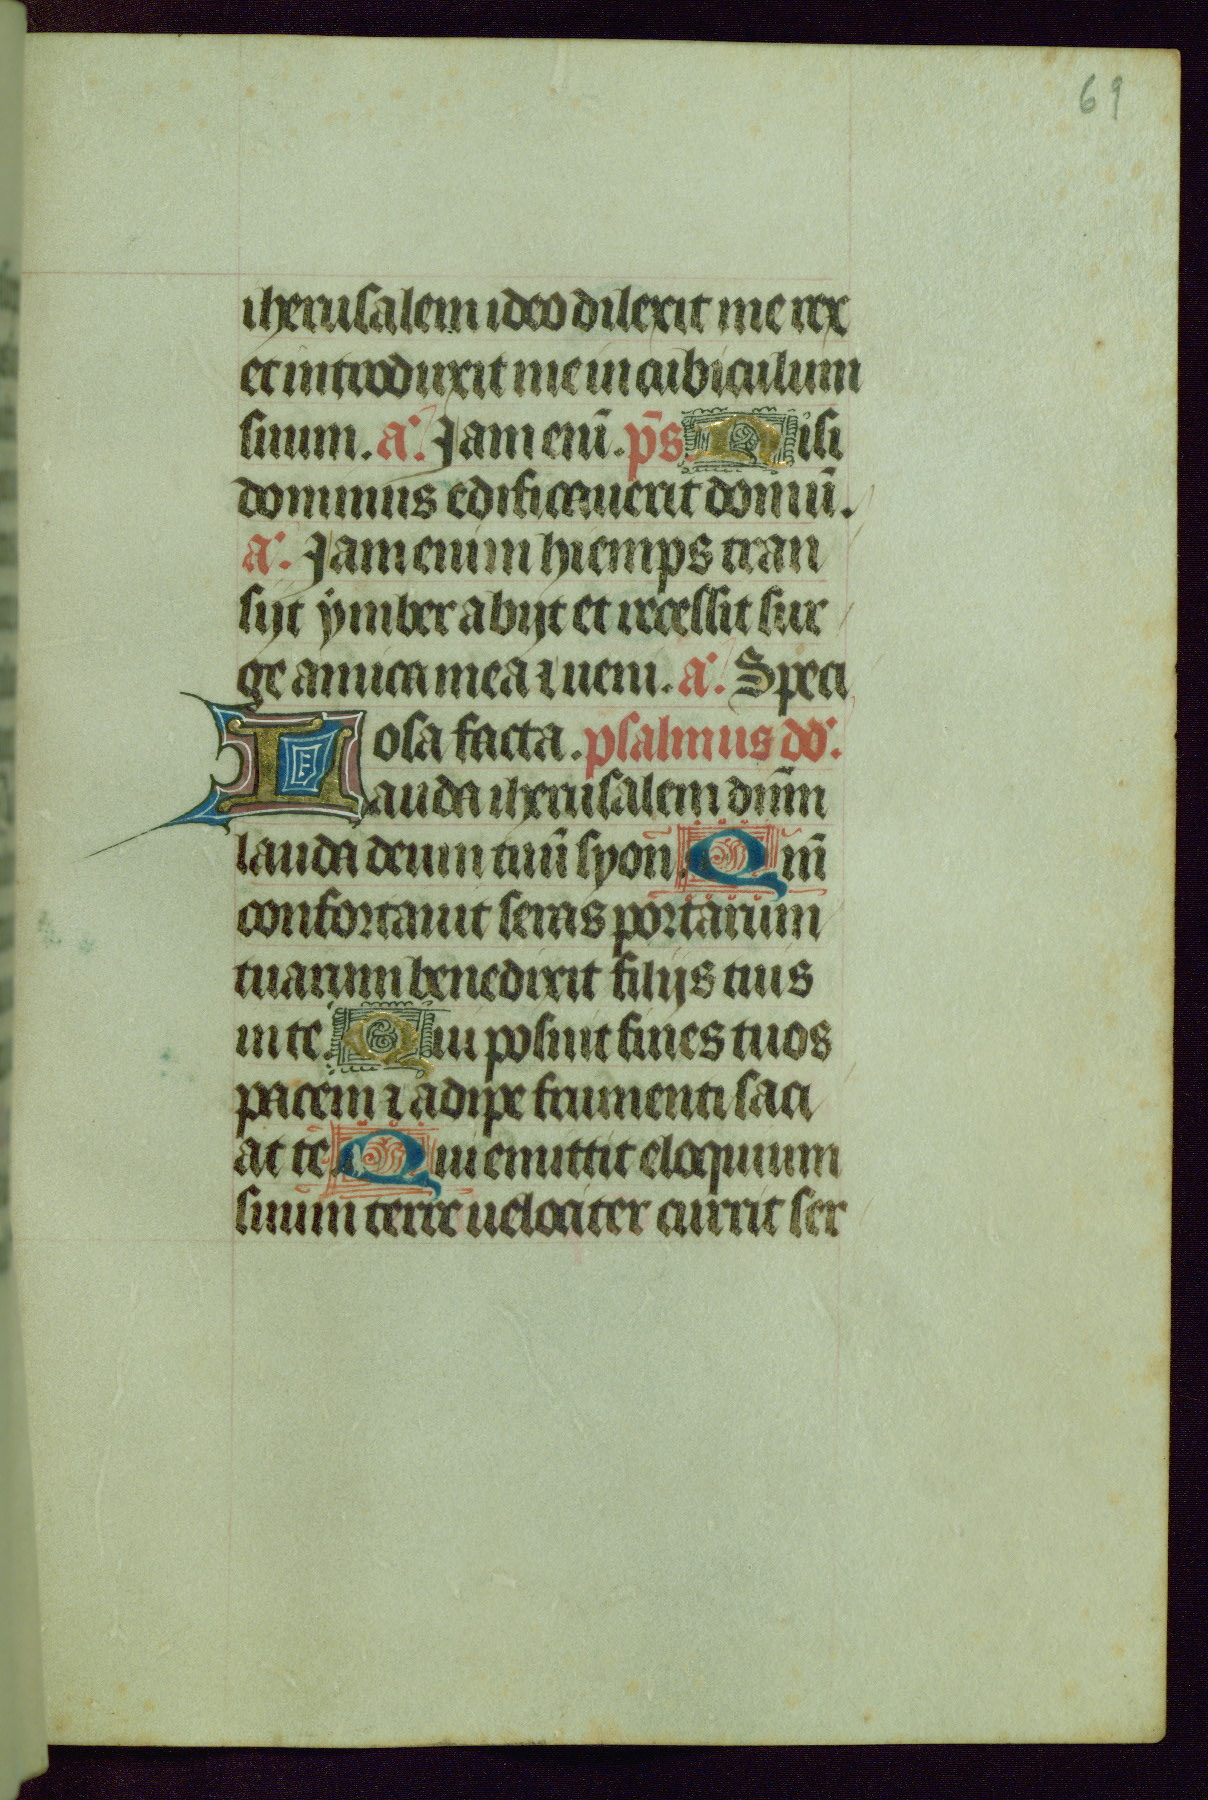 69
iherusalem ideo dilexit me rex
et introduxit me in cubiculum
suum. a: Jam enī. ps̄. Nisi
dominus edificauerit domū.
a: Jam enim hiemps tran
sijt ymber abijt et recessit sur
ge amica mea ⁊ ueni. a: Speci
osa facta. psalmus dd:
Lauda iherusalem dnm̄
lauda deum tuū syon. Qm̄
confortauit seras portarum
tuarum benedixit filijs tuis
in te. Qui posuit fines tuos
pacem ⁊ adipe frumenti saci
at te. Qui emittit eloquium
suum terre uelociter currit ser